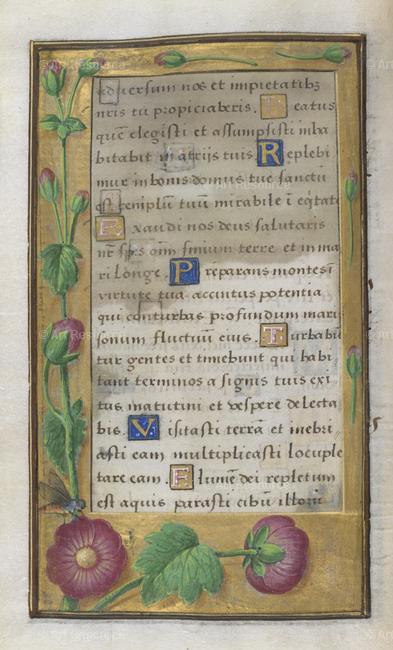 aduersum nos et impietatibꝫ
nris tu propiciaberis. Beatus
quē elegisti et assumpsisti inha
bitabit in atrijs tuis Replebi
mur in bonis domus tue sanctū
est templū tuū mirabile ī eq̄tate
Exaudi nos deus salutaris
nr̄ spes om̄ finium terre et in ma
ri longe. Preparans montes ī
virtute tua accintus potentia
qui conturbas profundum maris
sonum fluctuū eius. Turbabū
tur gentes et timebunt qui habi
tant terminos a signis tuis exi
tus matutini et vespere delecta
bis. Visitasti terrā et inebri
asti eam multiplicasti locuple
tare eam. Flumē dei repletum
est aquis parasti cibū illorū